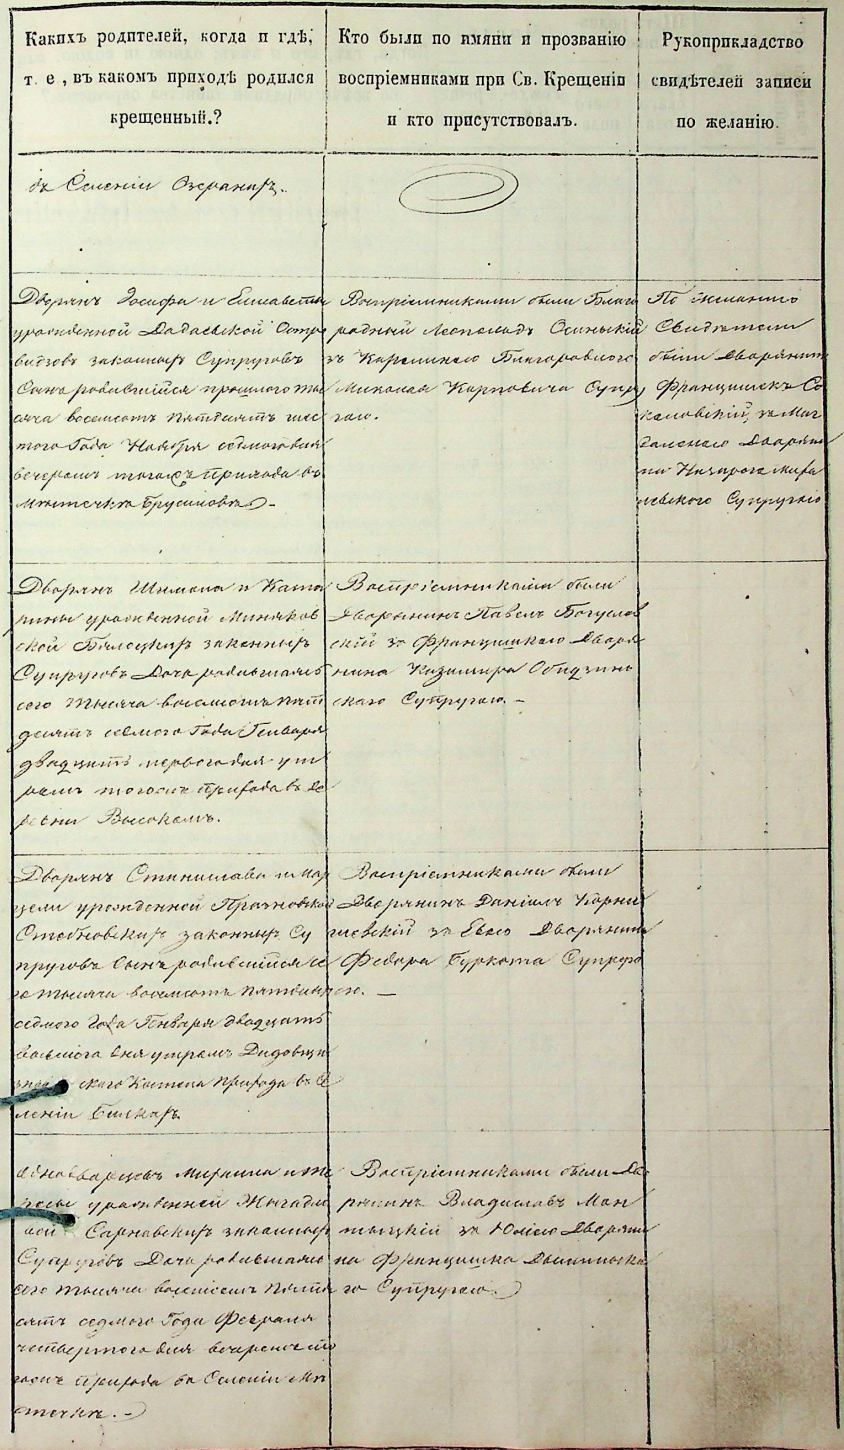 Какихъ родителей, когда и гдѣ,
т. е, въ какомъ приходѣ родился
крещенный.?
Кто были по имяни и прозванію
воспріемниками при Св. Крещеніи
и кто присутствовалъ.
Рукоприкладство
свидѣтелей записи
по желанію.
въ Селеніи
Дворянъ Іосифа и Елисаветы
урожденной
законныхъ Супруговъ
Сынъ родившійся прошлого ты
сяча восемсотъ пятдесятъ шес
того Года Ноября седмого дня
вечеромъ тогожъ прихода въ
Мѣстечкѣ Брусиловѣ
Воспріемниками были Благо
родный Леополадъ Осинскій
зъ Каролиною Благородного
Миколая Карповича Супру
гою.
По желанію
Свидѣтели
были Дворянинъ
Францишекъ Со
коловскій, зъ Маг
даленою Дворяни
на
левского Супругою
Дворянъ Шимона и Ката
рины урожденной Миняков
ской Бялоцкихъ законныхъ
Супруговъ Дочь родившаясь
сего тысяча восемсотъ пят
десятъ седмого Года Генваря
двадцать первого дня ут
ромъ тогожъ прихода въ де
ревни Высокомъ.
Воспріемниками были
Дворянинъ Павелъ Богуслав
скій зъ Францишкою Дворя
нина Казимира Обидзинс
скаго Супругою. –
Дворянъ Станислава и Мар
цели урожденной
законныхъ Су
пруговъ Сынъ родившійся се
го тысяча восемсотъ пятдесятъ
седмого Года Января двадцать
восьмого дня утромъ
ского Костела прихода въ Се
леніи
Воспріемниками были
Дворянинъ Даніилъ Карни
шевскій зъ Евою Дворянина
Федора Буркота Супруго
ю. —
Однодворцовъ
урожденной
Сарнавскихъ законныхъ
Супруговъ Дочь родившаясь
сего тысяча восемсотъ пятде
сятъ седмого Года Февраля
четвертого дня вечеромъ то
гожъ прихода въ Селеніи

Воспріемниками были Дво
рянинъ Владиславъ Ман
тыцкій зъ Юліею Дворяни
на Францишка
го Супругою.